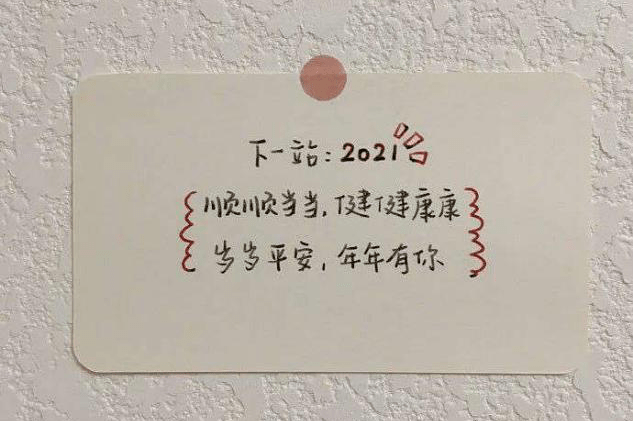 下一站：2021
顺顺当当，健健康康
岁岁平安，年年有你